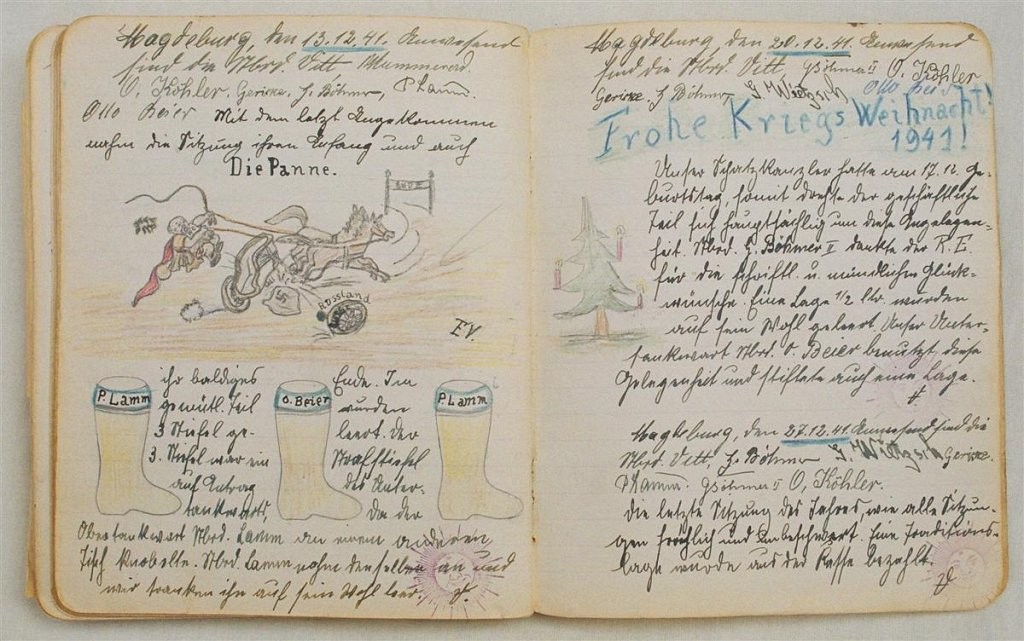 Magdeburg, den 13.12.41. Anwesend
sind die Mbrd. Vitt
O. Köhler. Gericke. H. Böhmer, P Lamm.
Otto Beier Mit dem letzt Angekommen
nahm die Sitzung ihren Anfang und auch
Die Panne.
Russland
E.V.
P. Lamm
o. Beier
P. Lamm
ihr baldiges Ende. Im
gemütl. Teil wurden
3 Stiefel geleert. Der
3. Stiefel war ein Strafstiefel
auf Antrag des Unter-
tankwarts, Da der
Obertankwart Mbrd. Lamm an einem anderen
Tisch knobelte. Mbrd. Lamm nahm denselben an und
wir tranken ihn auf sein Wohl leer.
Magdeburg, den 20.12.41. Anwesend
sind die Mbrd. Vitt, Böhmer II O. Köhler
Gericke. H. Böhmer Otto Beier
Frohe Kriegs Weihnacht!
1941!
Unser Schatzkanzler hatte am 17.12. Ge-
burtstag, somit drehte der geschäftliche
Teil sich hauptsächlich um diese Angelegen-
heit. Mbrd. H. Böhmer II dankte der R.E.
für die schriftl. u. mündlichen Glück-
wünsche. Eine Lage 1/2 ltr. wurden
auf sein Wohl geleert. Unser Unter-
tankwart Mbrd. O. Beier benutzt diese
Gelegenheit und stiftete auch eine Lage.
Magdeburg, den 27.12.41. Anwesend sind die
Mbrd. Vitt, H. Böhmer Gericke.
P Lamm. Böhmer II O. Köhler.
Die letzte Sitzung des Jahres wie alle Sitzun-
gen fröhlich und unbeschwert. Eine Traditions-
lage wurde aus der Kasse bezahlt.